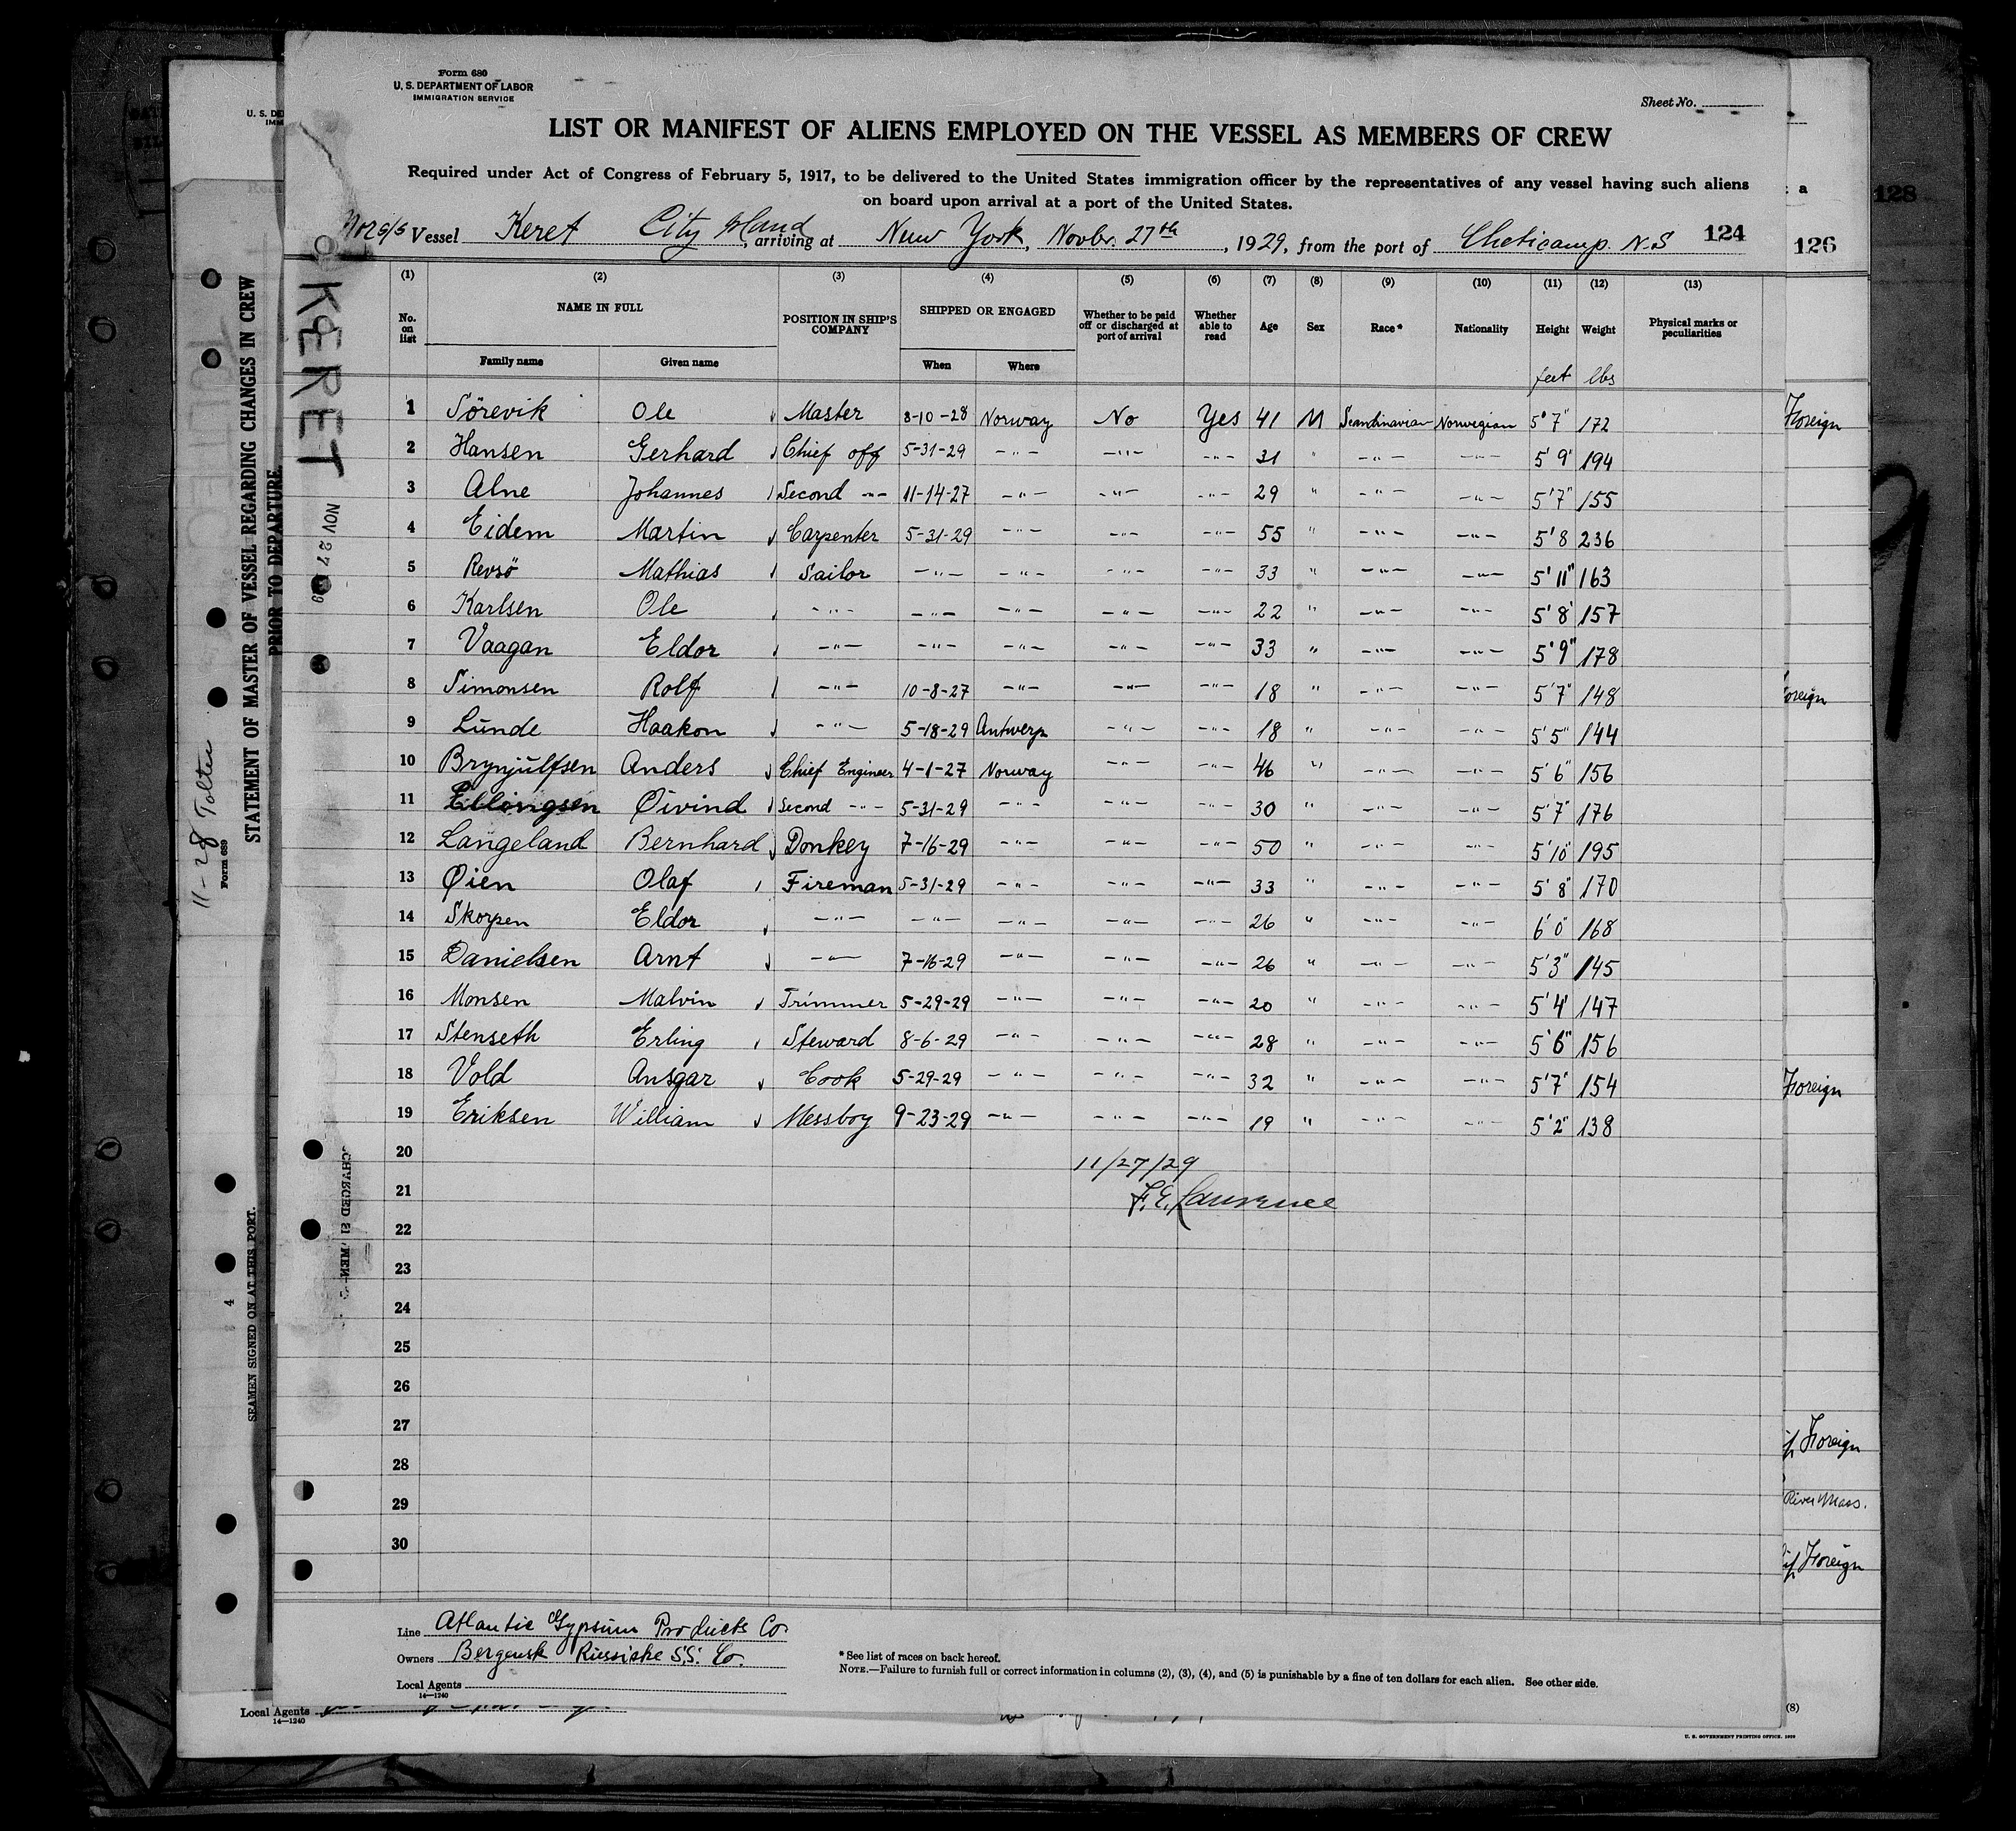 Form 680
U. S. DEPARTMENT OF LABOR
IMMIGRATION SERVICE
Sheet No.
LIST OR MANIFEST OF ALIENS EMPLOYED ON THE VESSEL AS MEMBERS OF CREW
Required under Act of Congress of February 5, 1917, to be delivered to the United States immigration officer by the representatives of any vessel having such aliens
on board upon arrival at a port of the United States.
Nor s/s Vessel Keret City Island, arriving at New York, Novbr. 27th, 1929, from the port of Cheticamp N.S 124
126
128
(1) (2) (3) (4) (5) (6) (7) (8) (9) (10) (11) (12) (13)
No. on list NAME IN FULL POSITION IN SHIP'S COMPANY SHIPPED OR ENGAGED Whether to be paid off or discharged at port of arrival Whether able to read Age Sex Race* Nationality Height Weight Physical marks or peculiarities
Family name Given name When Where
feet lbs
1 Sörevik Ole Master 8-10-28 Norway No Yes 41 M Scandinavian Norwegian 5'7" 172
2 Hansen Gerhard Chief off 5-31-29 -"- -"- -"- 31 " -"- -"- 5'9' 194
3 Alne Johannes Second -"- 11-14-27 -"- -"- -"- 29 " -"- -"- 5'7" 155
4 Eidem Martin Carpenter 5-31-29 -"- -"- -"- 55 " -"- -"- 5'8 236
5 Revsö Mathias Sailor -"- -"- -"- -"- 33 " -"- -"- 5'11" 163
6 Karlsen Ole -"- -"- -"- -"- -"- 22 " -"- -"- 5'8' 157
7 Vaagan Eldor -"- -"- -"- -"- -"- 33 " -"- -"- 5'9" 178
8 Simonsen Rolf -"- 10-8-27 -"- -"- -"- 18 " -"- -"- 5'7" 148
9 Lunde Haakon -"- 5-18-29 Antwerp -"- -"- 18 " -"- -"- 5'5" 144
10 Brynjulfsen Anders Chief Engineer 4-1-27 Norway -"- -"- 46 " -"- -"- 5'6" 156
11 Ellingsen Öivind Second -"- 5-31-29 -"- -"- -"- 30 " -"- -"- 5'7" 176
12 Langeland Bernhard Donkey 7-16-29 -"- -"- -"- 50 " -"- -"- 5'10" 195
13 Öien Olaf Fireman 5-31-29 -"- -"- -"- 33 " -"- -"- 5'8" 170
14 Skorpen Eldor -"- -"- -"- -"- -"- 26 " -"- -"- 6'0" 168
15 Danielsen Arnt -"- 7-16-29 -"- -"- -"- 26 " -"- -"- 5'3" 145
16 Monsen Malvin Trimmer 5-29-29 -"- -"- -"- 20 " -"- -"- 5'4' 147
17 Stenseth Erling Steward 8-6-29 -"- -"- -"- 28 " -"- -"- 5'6" 156
18 Vold Ansgar Cook 5-29-29 -"- -"- -"- 32 " -"- -"- 5'7' 154
19 Eriksen William Messboy 9-23-29 -"- -"- -"- 19 " -"- -"- 5'2" 138
20
11/27/29
21
F.E. Lawrence
22
23
24
25
26
27
28
29
30
Line Atlantic Gypsum Products Co.
Owners Bergensk Russiske S.S. Co.
Local Agents
14—1240
* See list of races on back hereof.
NOTE.—Failure to furnish full or correct information in columns (2), (3), (4), and (5) is punishable by a fine of ten dollars for each alien. See other side.
KERET
NOV 27
STATEMENT OF MASTER OF VESSEL REGARDING CHANGES IN CREW
PRIOR TO DEPARTURE
SEAMEN SIGNED ON AT THIS PORT.
Form 689
11-28 Tolten
4
Foreign
Foreign
Foreign
River Mass.
Foreign
Local Agents
14—1240
(8)
U. S. GOVERNMENT PRINTING OFFICE.